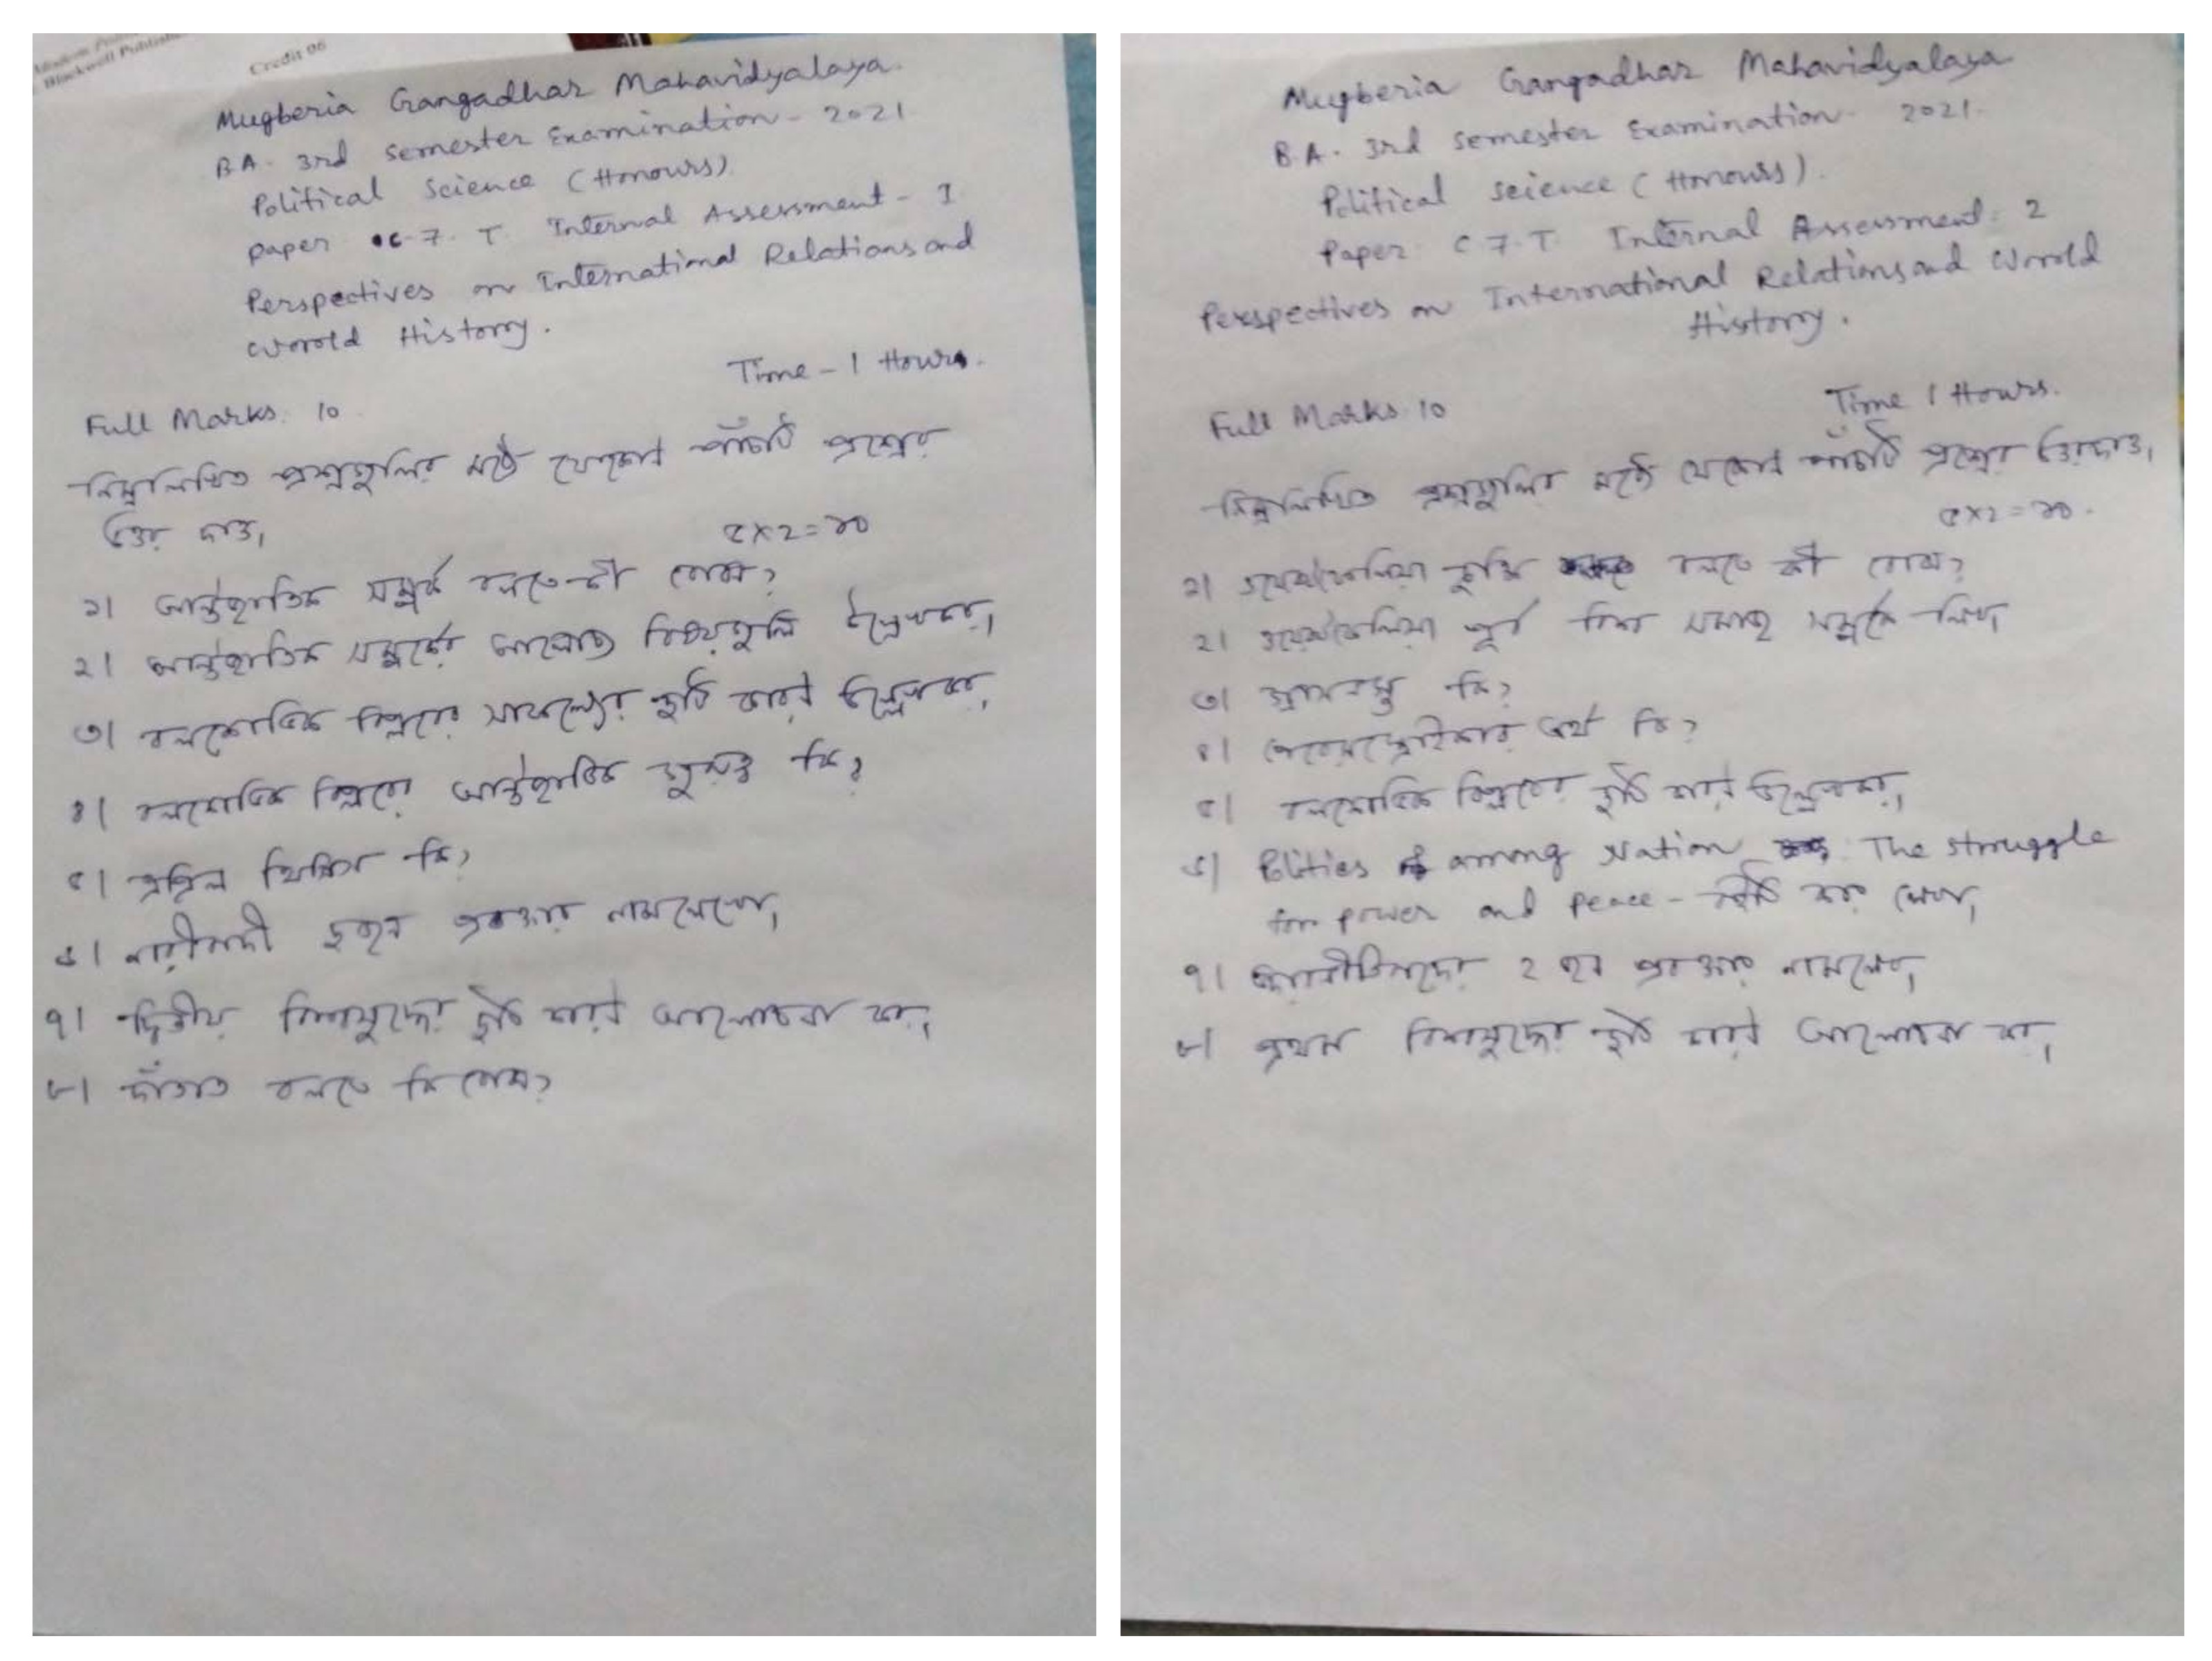 Blackwell Publish
Credit 06
Mugberia Gangadhar Mahavidyalaya.
B.A. 3rd Semester Examination - 2021
Political Science (Honours)
Paper C-7. T. Internal Assessment - I
Perspectives on International Relations and
World History.
Time - 1 Hours.
Full Marks. 10
নিম্নলিখিত প্রশ্নগুলির মধ্যে যেকোন পাঁচটি প্রশ্নের
উত্তর দাও।
৫x২=১০
১। আন্তর্জাতিক সম্পর্ক বলতে কী বোঝ?
২। আন্তর্জাতিক সম্পর্কের আলোচ্য বিষয়গুলি উল্লেখ কর।
৩। বলশেভিক বিপ্লবের সাফল্যের দুটি কারণ উল্লেখ কর।
৪। বলশেভিক বিপ্লবের আন্তর্জাতিক গুরুত্ব কি?
৫। এপ্রিল থিসিস কি?
৬। নারীবাদী দুজন প্রবক্তার নাম লেখো।
৭। দ্বিতীয় বিশ্বযুদ্ধের দুটি কারণ আলোচনা কর।
৮। দাঁতাত বলতে কি বোঝ?
Mugberia Gangadhar Mahavidyalaya
B.A. 3rd Semester Examination - 2021.
Political Science (Honours).
Paper C 7. T Internal Assessment: 2
Perspectives on International Relations and World
History.
Full Marks. 10
Time 1 Hours.
নিম্নলিখিত প্রশ্নগুলির মধ্যে যেকোন পাঁচটি প্রশ্নের উত্তর দাও।
৫x২=১০.
১। ওয়েস্টফেলিয়া চুক্তি বলতে কী বোঝ?
২। ওয়েস্টফেলিয়া পূর্ব বিশ্ব সমাজ সম্পর্কে লিখ।
৩। গ্লাসনস্ত কি?
৪। পেরেস্ত্রৈকার অর্থ কি?
৫। বলশেভিক বিপ্লবের দুটি কারণ উল্লেখ কর।
৬। Politics among Nation : The Struggle
for power and peace - বইটি কার লেখা।
৭। 2 জন প্রবক্তার নাম লেখ।
৮। প্রথম বিশ্বযুদ্ধের দুটি কারণ আলোচনা কর।